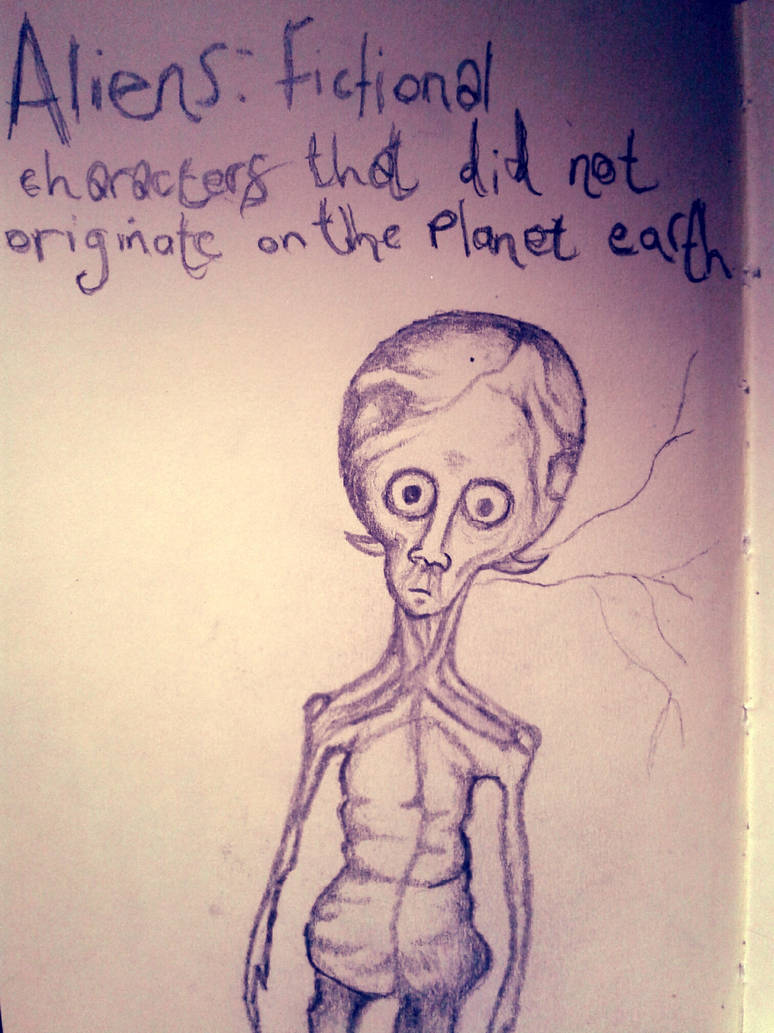 Aliens: Fictional
characters that did not
originate on the Planet earth...